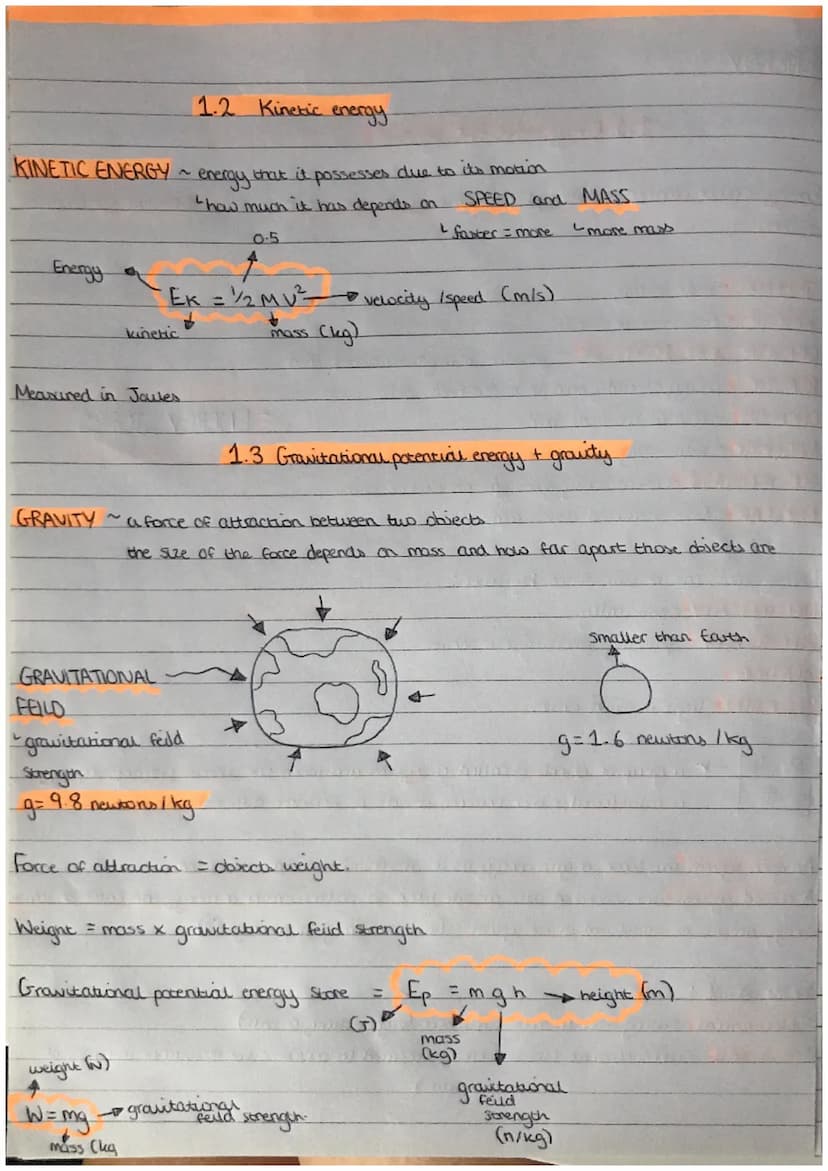 1.2 Kinetic energy
KINETIC ENERGY ~ energy that it possesses due to its motion
how much it has depends on SPEED and MASS
faster = more more mass
0.5
Energy
Ek = 1/2 M V² velocity /speed (m/s)
kinetic mass (kg)
Measured in Joules
1.3 Gravitational potential energy + gravity
GRAVITY ~ a force of attraction between two objects
the size of the force depends on mass and how far apart those objects are
smaller than Earth
GRAVITATIONAL
FEILD
gravitational feild
strength
g = 1.6 newtons /kg
g= 9.8 newtons / kg
Force of attraction = objects weight.
Weight = mass x gravitational feild strength
Gravitational potential energy store = Ep = m g h height (m)
(J)
mass
(kg)
gravitational
feild
strength
(n/kg)
weight (N)
W = mg gravitational
feild strength.
mass (kg